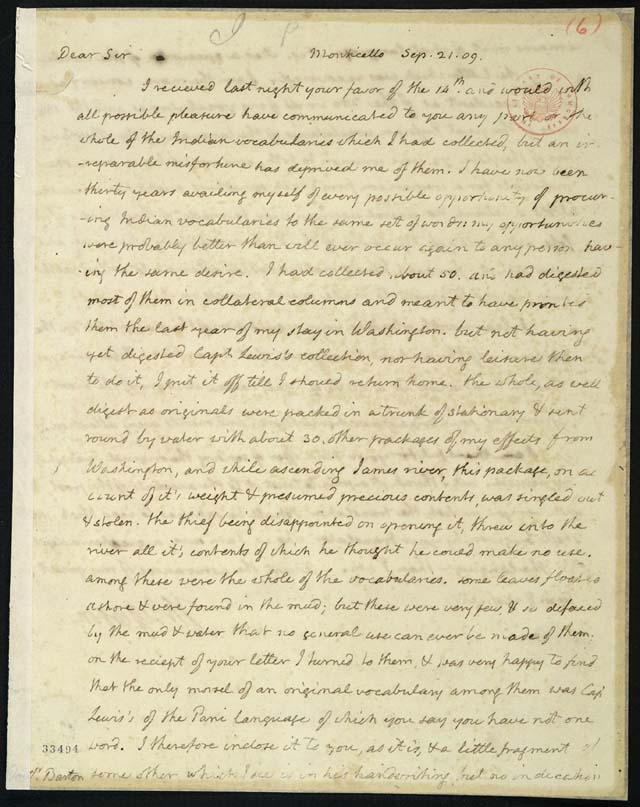 (6)
Dear Sir Monticello Sep. 21. 09.
I recieved last night your favor of the 14th. and would with
all possible pleasure have communicated to you any part or the
whole of the Indian vocabularies which I had collected, but an ir-
-reparable misfortune has deprived me of them. I have now been
thirty years availing myself of every possible opportunity of procur-
-ing Indian vocabularies to the same set of words: my opportunities
were probably better than will ever occur again to any person hav-
-ing the same desire. I had collected about 50. and had digested
most of them in collateral columns and meant to have printed
them the last year of my stay in Washington. but not having
yet digested Capt. Lewis's collection, nor having leisure then
to do it, I put it off till I should return home. the whole, as well
digest as originals were packed in a trunk of stationary & sent
round by water with about 30. other packages of my effects from
Washington, and while ascending James river, this package, on ac-
count of it's weight & presumed precious contents, was singled out
& stolen. the thief being disappointed on opening it, threw into the
river all it's contents of which he thought he could make no use.
among these were the whole of the vocabularies. some leaves floated
ashore & were found in the mud; but these were very few, & so defaced
by the mud & water that no general use can ever be made of them.
on the reciept of your letter I turned to them, & was very happy to find
that the only morsel of an original vocabulary among them was Capt.
Lewis's of the Pani language of which you say you have not one
word. I therefore inclose it to you, as it is, & a little fragment of
some other which I see is in his handwriting, but no indication
33494
Barton